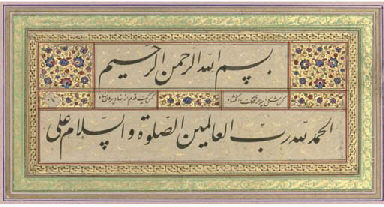 بسم الله الرحمن الرحیم
الحمد لله رب العالمین الصلوة والسلام علی